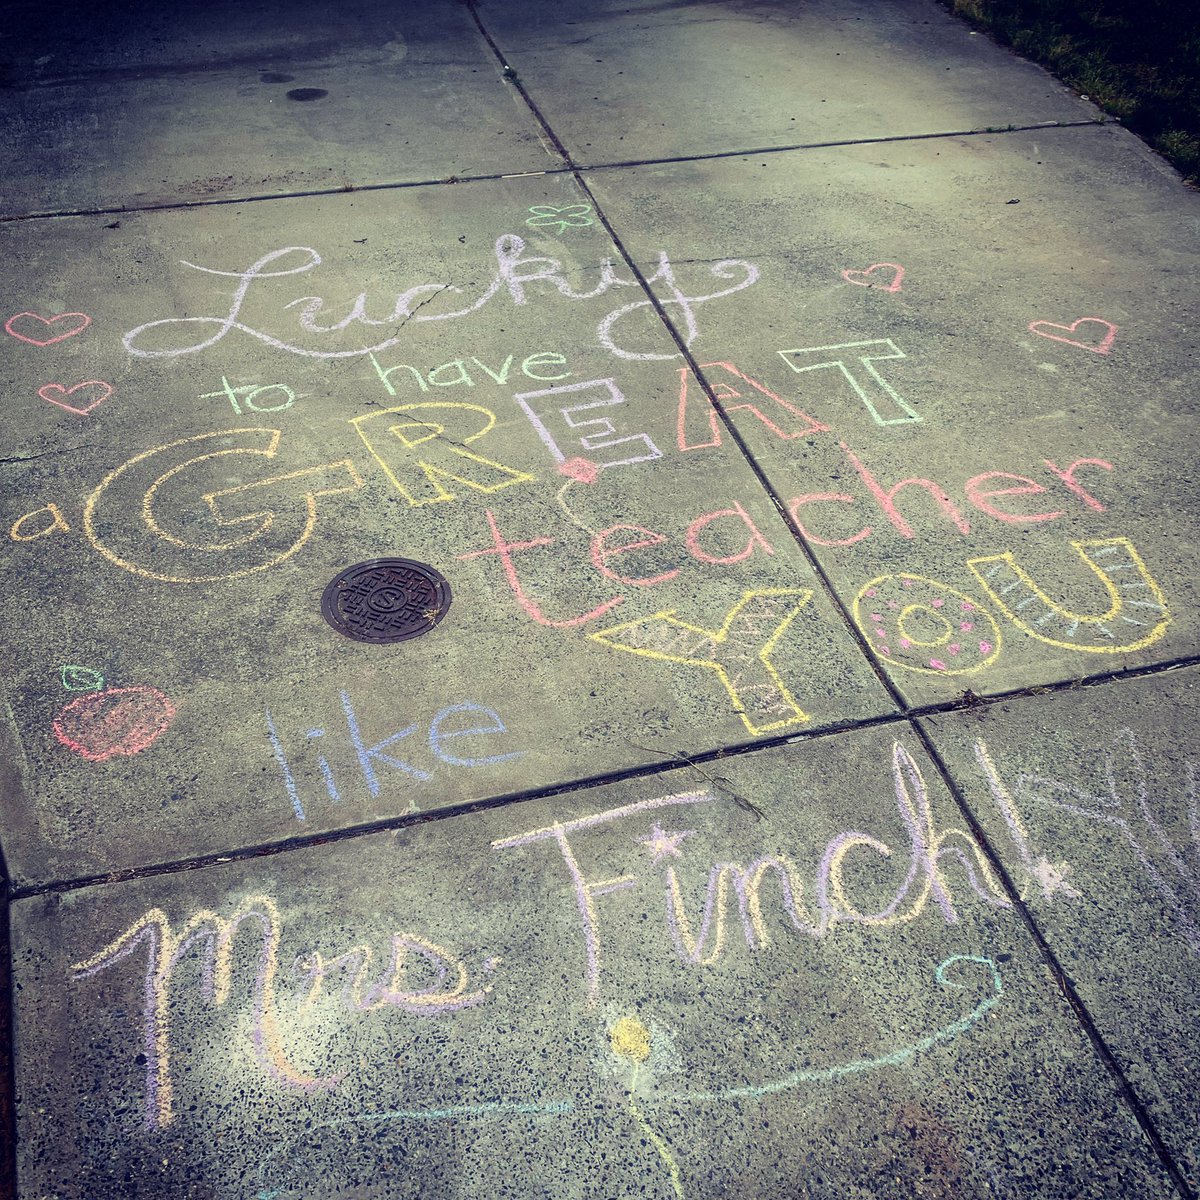 Lucky
to have
a GREAT
teacher
like YOU
Mrs. Finch!
S